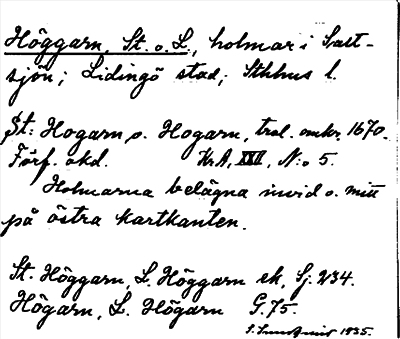 Höggarn, St. o. L., holmar i Salt-
sjön; Lidingö stad; Sthlms l.
St: Hogarn o. Hogarn, trol. omkr. 1670.
Förf. okd. KrA, XXII, N:o 5.
Holmarna belägna invid o. mitt
på östra kartkanten.
St. Höggarn, L. Höggarn ek, Sj. 234.
Högarn, L. Högarn G. 75.
1935.